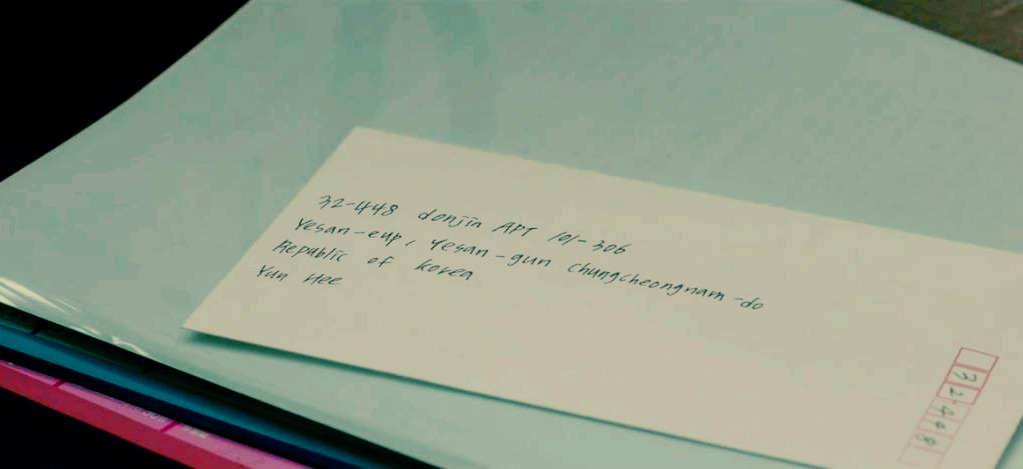 32-448 donjin APT 101-306
Yesan-eup, Yesan-gun chungcheongnam-do
Republic of korea
Yun Hee
32448